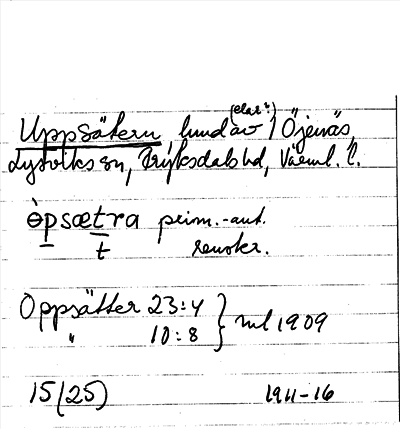 (elar?)
Uppsätern lund av Öjenäs,
Lysviks sn, Fryksdals hd, Värml. l.
òpsætra prim.-ant.
t renskr.
Oppsätter 23:4 } ml 1909
" 10:8
15(25) 1911-16